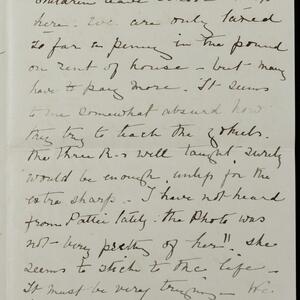 children leave
here. We are only taxed
so far a penny in the pound
on rent of house – but many
have to pay more. It seems
to me somewhat absurd how
they try to teach the yokels.
the three R-s well taught surely
would be enough, unless for the
extra sharp – I have not heard
from Pattie lately. the Photo was
not very pretty of her!! she
seems to stick to the life –
It must be very trying – We